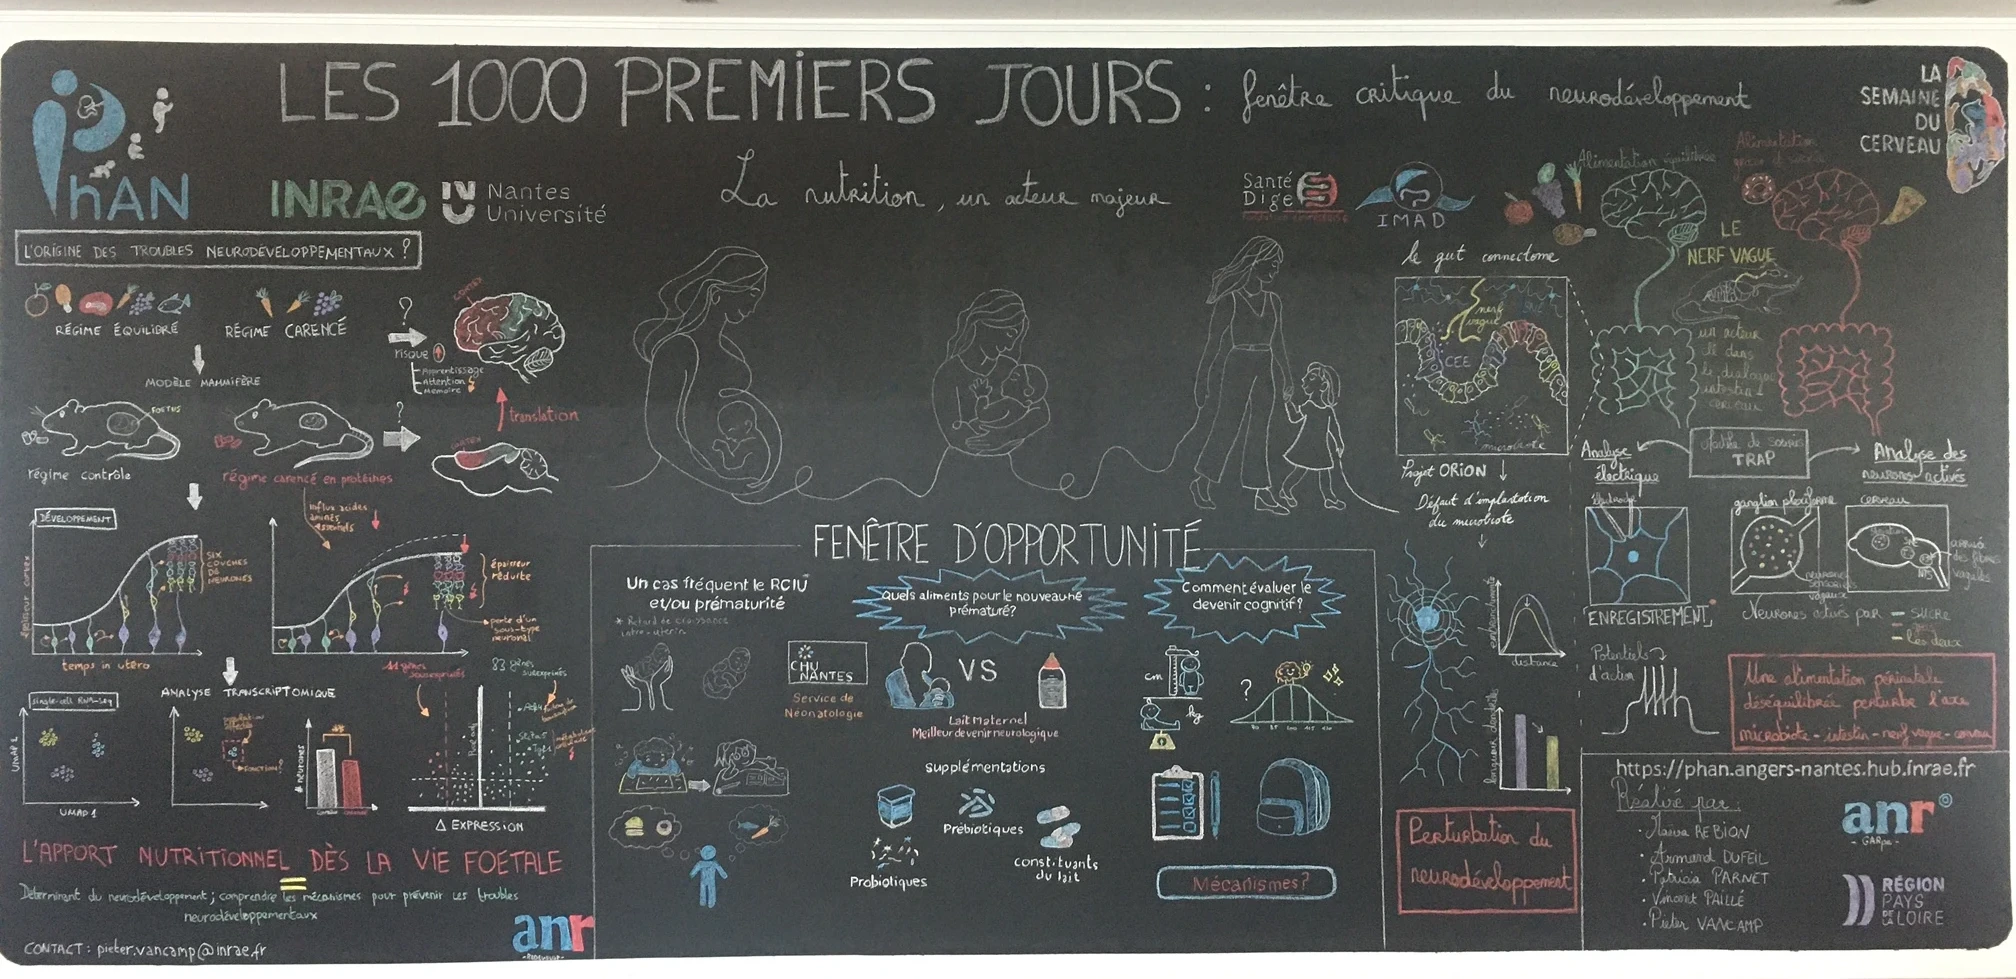 LES 1000 PREMIERS JOURS : fenêtre critique du neurodéveloppement
La nutrition, un acteur majeur
PhAN
INRAE
Nantes
Université
Santé
Dige
IMAD
LA
SEMAINE
DU
CERVEAU
L'ORIGINE DES TROUBLES NEURODÉVELOPPEMENTAUX ?
RÉGIME ÉQUILIBRÉ
RÉGIME CARENCÉ
?
risque
Apprentissage
Attention
Mémoire
CORTEX
translation
MODÈLE MAMMIFÈRE
FOETUS
?
CORTEX
régime contrôle
régime carencé en protéines
influx acides
aminés
essentiels
DÉVELOPPEMENT
épaisseur cortex
SIX
COUCHES
DE
NEURONES
temps in utéro
épaisseur
réduite
perte d'un
sous-type
neuronal
ANALYSE TRANSCRIPTOMIQUE
single-cell RNA-seq
UMAP 1
UMAP 1
FONCTION?
# neurones
surexprimés
83 gènes
Δ EXPRESSION
L'APPORT NUTRITIONNEL DÈS LA VIE FOETALE
=
Déterminant du neurodéveloppement ; comprendre les mécanismes pour prévenir les troubles
neurodéveloppementaux
CONTACT : pieter.vancamp@inrae.fr
anr
FENÊTRE D'OPPORTUNITÉ
Un cas fréquent le RCIU
et/ou prématurité
* Retard de croissance
intra-utérin
CHU
NANTES
Service de
Néonatologie
Quels aliments pour le nouveau né
prématuré?
VS
Lait Maternel
Meilleur devenir neurologique
supplémentations
Prébiotiques
Probiotiques
constituants
du lait
Comment évaluer le
devenir cognitif?
cm
kg
?
Mécanismes?
le gut connectome
nerf
vague
CEE
microbiote
Projet ORION
Défaut d'implantation
du microbiote
distance
Perturbation du
neurodéveloppement
Alimentation équilibrée
Alimentation
grasse et sucrée
LE
NERF VAGUE
un acteur
clé dans
le dialogue
intestin-
cerveau
Modèle de souris
TRAP
Analyse
électrique
électrode
"ENREGISTREMENT"
Potentiels
d'action
Analyse des
neurones activés
ganglion plexiforme
cerveau
neurones
sensoriels
vagaux
arrivée
des fibres
vagales
NTS
Neurones activés par
SUCRE
les deux
Une alimentation périnatale
déséquilibrée perturbe l'axe
microbiote - intestin - nerf vague - cerveau
https://phan.angers-nantes.hub.inrae.fr
Réalisé par :
REBION
• Armand DUFEIL
• Patricia PARNET
• Vincent PAILLÉ
• Pieter VANCAMP
anr
RÉGION
PAYS
DE LA
LOIRE